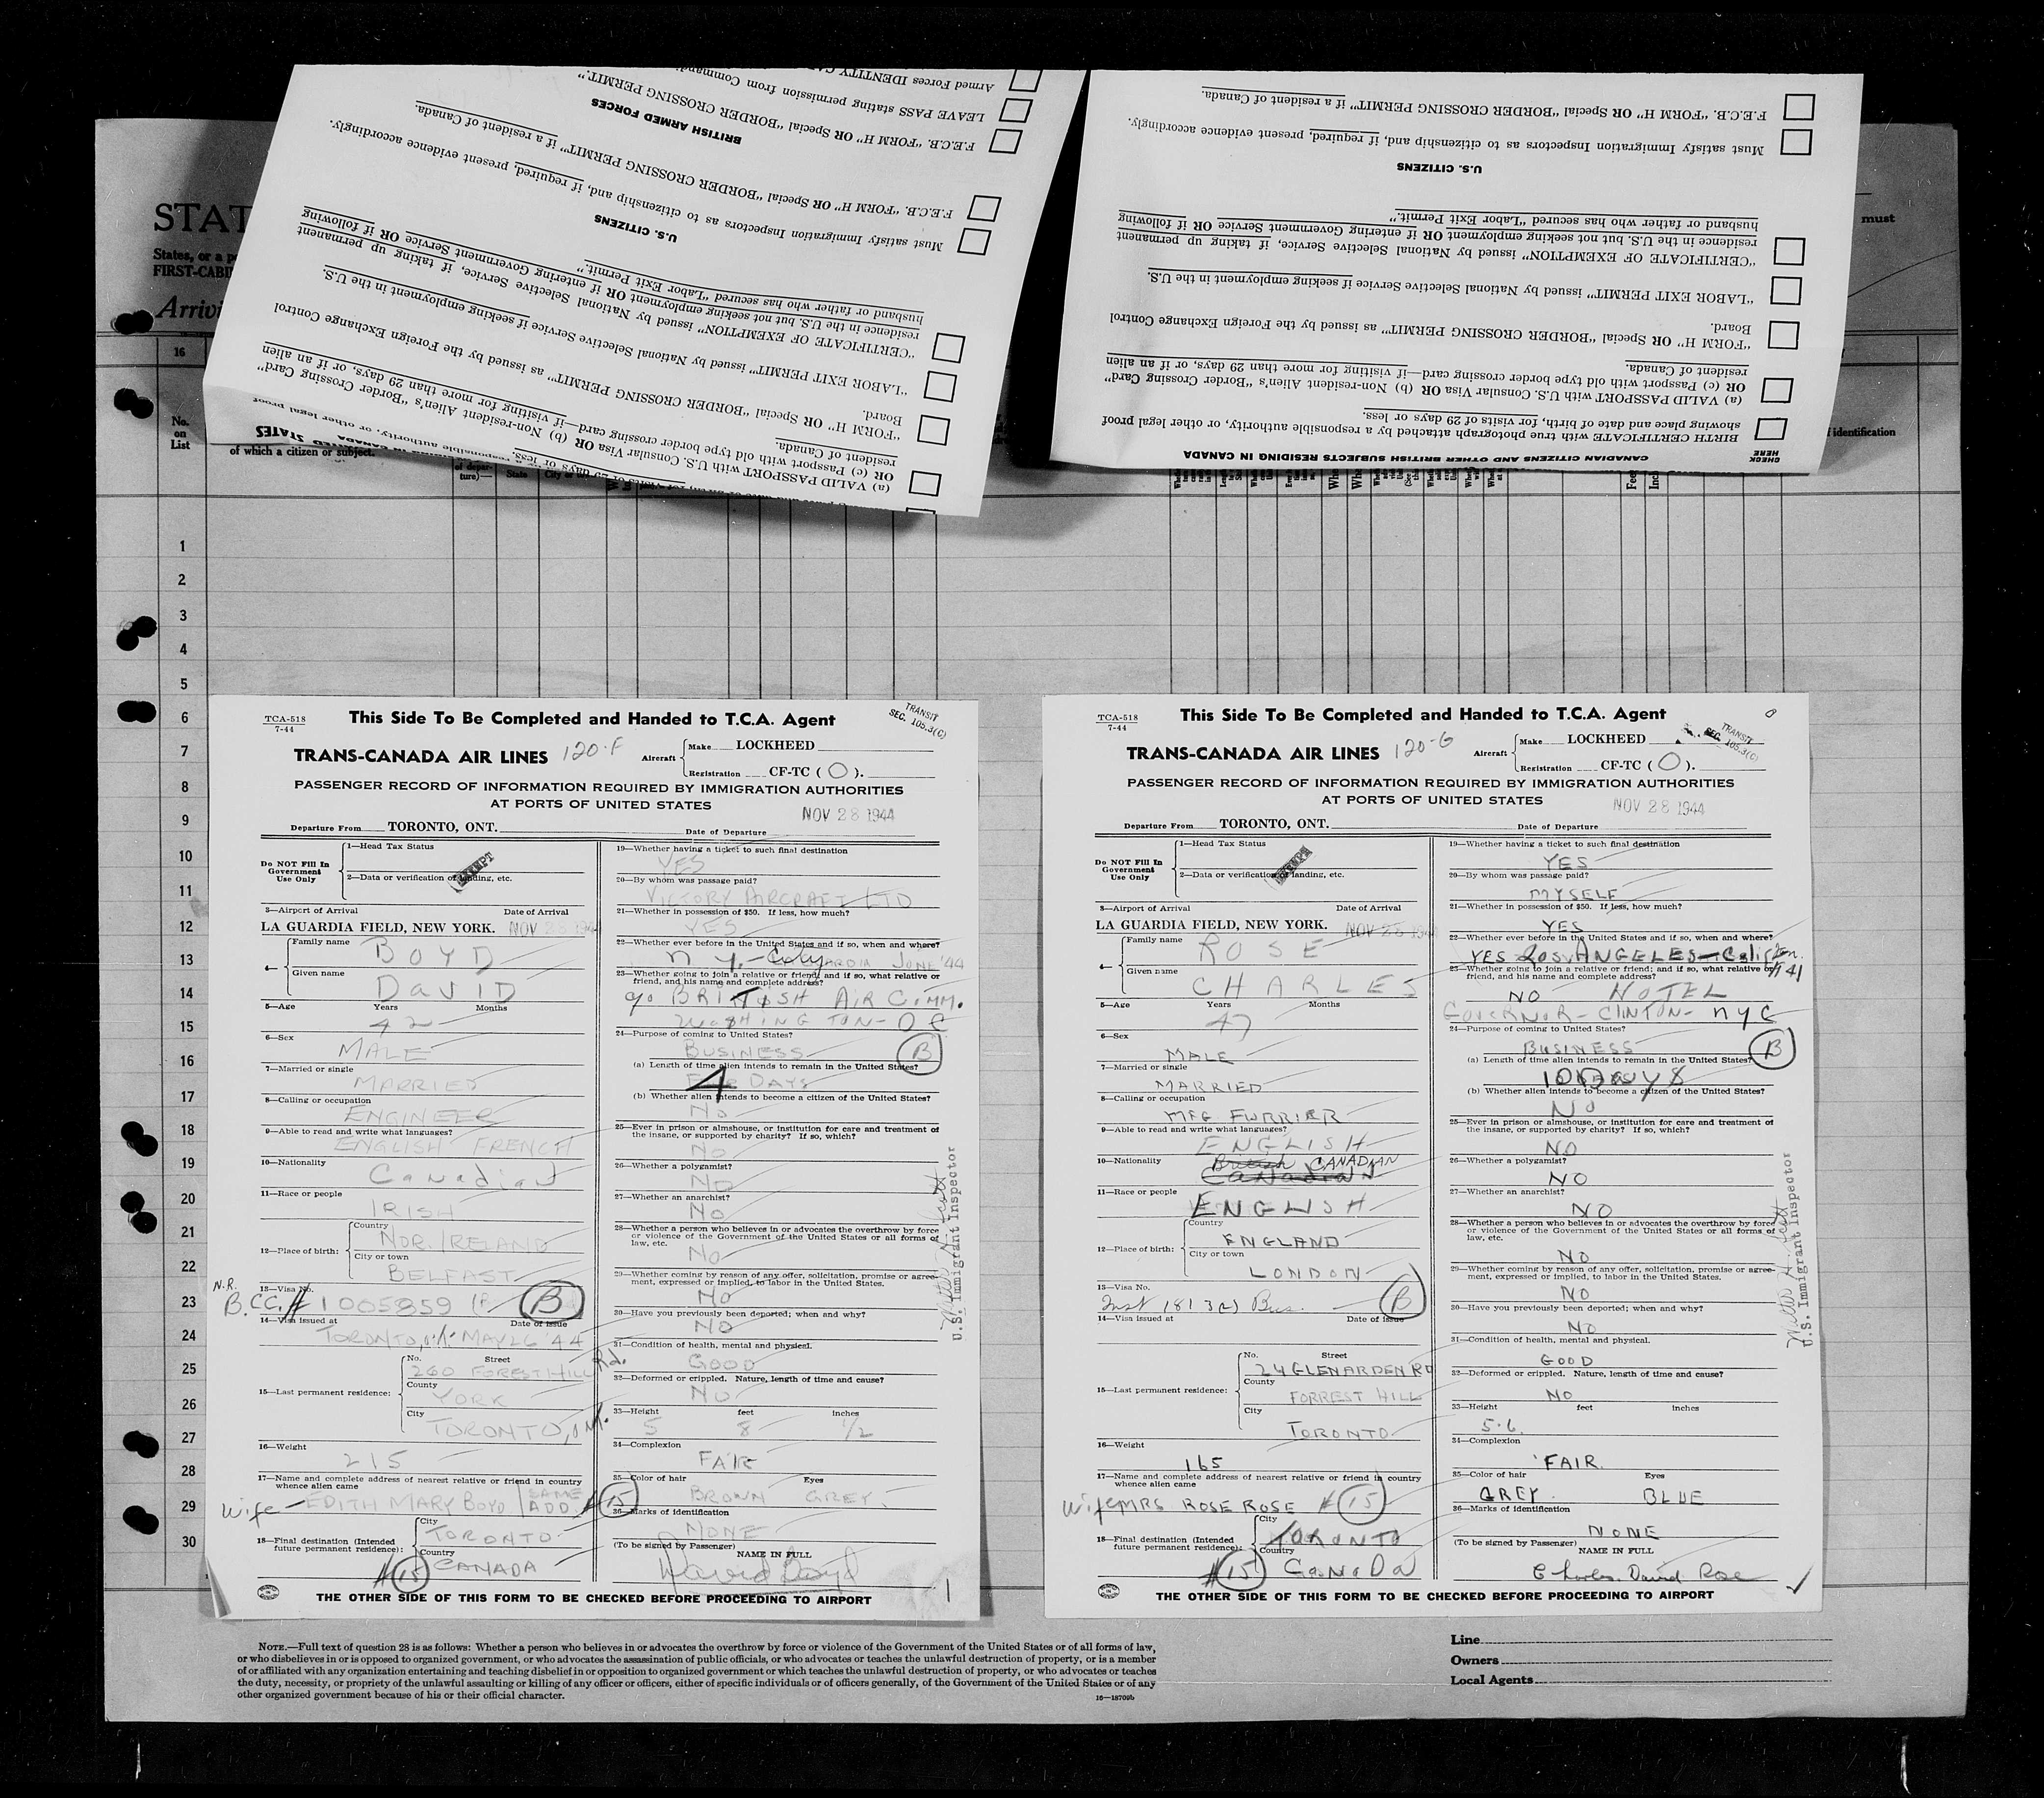 STAT
States, or a p
FIRST-CABI
Arrivi
must
16
No.
on
List
of which a citizen or subject.
of depar-
ture)—
State
City or
identification
Armed Forces IDENTITY
LEAVE PASS stating permission from Comman
F.E.C.B. "FORM H" OR Special "BORDER CROSSING PERMIT."
BRITISH ARMED FORCES
F.E.C.B. "FORM H" OR Special "BORDER CROSSING PERMIT" if a resident of Canada.
Must satisfy Immigration Inspectors as to citizenship and, if required, present evidence accordingly.
U.S. CITIZENS
"CERTIFICATE OF EXEMPTION" issued by National Selective Service, if taking up permanent
residence in the U.S. but not seeking employment OR if entering Government Service OR if following
husband or father who has secured "Labor Exit Permit."
"LABOR EXIT PERMIT" issued by National Selective Service if seeking employment in the U.S.
"FORM H" OR Special "BORDER CROSSING PERMIT" as issued by the Foreign Exchange Control
Board.
(a) VALID PASSPORT with U.S. Consular Visa OR (b) Non-resident Alien's "Border Crossing Card"
OR (c) Passport with old type border crossing card—if visiting for more than 29 days, or if an alien
resident of Canada.
F.E.C.B. "FORM H" OR Special "BORDER CROSSING PERMIT" if a resident of Canada.
Must satisfy Immigration Inspectors as to citizenship and, if required, present evidence accordingly.
U.S. CITIZENS
"CERTIFICATE OF EXEMPTION" issued by National Selective Service, if taking up permanent
residence in the U.S. but not seeking employment OR if entering Government Service OR if following
husband or father who has secured "Labor Exit Permit."
"LABOR EXIT PERMIT" issued by National Selective Service if seeking employment in the U.S.
"FORM H" OR Special "BORDER CROSSING PERMIT" as issued by the Foreign Exchange Control
Board.
(a) VALID PASSPORT with U.S. Consular Visa OR (b) Non-resident Alien's "Border Crossing Card"
OR (c) Passport with old type border crossing card—if visiting for more than 29 days, or if an alien
resident of Canada.
BIRTH CERTIFICATE with true photograph attached by a responsible authority, or other legal proof
showing place and date of birth, for visits of 29 days or less.
CHECK HERE
CANADIAN CITIZENS AND OTHER BRITISH SUBJECTS RESIDING IN CANADA
1
2
3
4
5
6
7
8
9
10
11
12
13
14
15
16
17
18
19
20
21
22
23
24
25
26
27
28
29
30
TCA-518
7-44
This Side To Be Completed and Handed to T.C.A. Agent
TRANSIT
SEC. 105.3(C)
TRANS-CANADA AIR LINES 120-F
Aircraft
Make LOCKHEED
Registration CF-TC ( O ).
PASSENGER RECORD OF INFORMATION REQUIRED BY IMMIGRATION AUTHORITIES
AT PORTS OF UNITED STATES
NOV 28 1944
Departure From TORONTO, ONT.
Date of Departure
Do NOT Fill In Government Use Only
1—Head Tax Status
2—Data or verification of landing, etc.
EXEMPT
3—Airport of Arrival
Date of Arrival
LA GUARDIA FIELD, NEW YORK. NOV 28 194
4—
Family name
BOYD
Given name
DAVID
5—Age Years Months
42
6—Sex
MALE
7—Married or single
MARRIED
8—Calling or occupation
ENGINEER
9—Able to read and write what languages?
ENGLISH FRENCH
10—Nationality
Canadian
11—Race or people
IRISH
12—Place of birth:
Country
NOR. IRELAND
City or town
BELFAST
N.R.
13—Visa No.
B.C.C. # 1005859 B
14—Visa issued at Date of issue
TORONTO, MAY 26 '44
15—Last permanent residence:
No. Street
260 FOREST HILL Rd.
County
YORK
City
TORONTO,
16—Weight
215
17—Name and complete address of nearest relative or friend in country
whence alien came
Wife — EDITH MARY BOYD SAME ADD. # 15
18—Final destination (Intended
future permanent residence):
City
TORONTO
Country
CANADA
# 15
19—Whether having a ticket to such final destination
YES
20—By whom was passage paid?
VICTORY AIRCRAFT LTD
21—Whether in possession of $50. If less, how much?
YES
22—Whether ever before in the United States and if so, when and where?
N Y. - City JUNE '44
23—Whether going to join a relative or friend; and if so, what relative or
friend, and his name and complete address?
c/o BRITISH AIR COMM.
WASHINGTON - DC
24—Purpose of coming to United States?
BUSINESS B
(a) Length of time alien intends to remain in the United States?
4 DAYS
(b) Whether alien intends to become a citizen of the United States?
No
25—Ever in prison or almshouse, or institution for care and treatment of
the insane, or supported by charity? If so, which?
No
26—Whether a polygamist?
No
27—Whether an anarchist?
No
28—Whether a person who believes in or advocates the overthrow by force
or violence of the Government of the United States or all forms of
law, etc.
No
29—Whether coming by reason of any offer, solicitation, promise or agree-
ment, expressed or implied, to labor in the United States.
No
30—Have you previously been deported; when and why?
No
31—Condition of health, mental and physical.
GOOD
32—Deformed or crippled. Nature, length of time and cause?
NO
33—Height feet inches
5 8 1/2
34—Complexion
FAIR
35—Color of hair Eyes
BROWN GREY.
36—Marks of identification
NONE
(To be signed by Passenger)
NAME IN FULL
David Boyd
U.S. Immigrant Inspector
THE OTHER SIDE OF THIS FORM TO BE CHECKED BEFORE PROCEEDING TO AIRPORT
1
TCA-518
7-44
This Side To Be Completed and Handed to T.C.A. Agent
TRANSIT
SEC. 105.3(C)
TRANS-CANADA AIR LINES 120-G
Aircraft
Make LOCKHEED
Registration CF-TC ( O ).
PASSENGER RECORD OF INFORMATION REQUIRED BY IMMIGRATION AUTHORITIES
AT PORTS OF UNITED STATES
NOV 28 1944
Departure From TORONTO, ONT.
Date of Departure
Do NOT Fill In Government Use Only
1—Head Tax Status
2—Data or verification of landing, etc.
EXEMPT
3—Airport of Arrival
Date of Arrival
LA GUARDIA FIELD, NEW YORK. NOV 28 194
4—
Family name
ROSE
Given name
CHARLES
5—Age Years Months
47
6—Sex
MALE
7—Married or single
MARRIED
8—Calling or occupation
MFG FURRIER
9—Able to read and write what languages?
ENGLISH
10—Nationality
British CANADIAN
Canadian
11—Race or people
ENGLISH
12—Place of birth:
Country
ENGLAND
City or town
LONDON
13—Visa No.
Inst 181 3(2) Bus. B
14—Visa issued at Date of issue
15—Last permanent residence:
No. Street
24 GLENARDEN RD
County
FORREST HILL
City
TORONTO
16—Weight
165
17—Name and complete address of nearest relative or friend in country
whence alien came
Wife MRS ROSE ROSE # 15
18—Final destination (Intended
future permanent residence):
City
TORONTO
Country
CANADA
# 15
19—Whether having a ticket to such final destination
YES
20—By whom was passage paid?
MYSELF
21—Whether in possession of $50. If less, how much?
YES
22—Whether ever before in the United States and if so, when and where?
YES LOS ANGELES - Calif
41
23—Whether going to join a relative or friend; and if so, what relative or
friend, and his name and complete address?
NO HOTEL
GOVERNOR - CLINTON - NYC
24—Purpose of coming to United States?
BUSINESS B
(a) Length of time alien intends to remain in the United States?
10 Days
(b) Whether alien intends to become a citizen of the United States?
No
25—Ever in prison or almshouse, or institution for care and treatment of
the insane, or supported by charity? If so, which?
NO
26—Whether a polygamist?
NO
27—Whether an anarchist?
NO
28—Whether a person who believes in or advocates the overthrow by force
or violence of the Government of the United States or all forms of
law, etc.
NO
29—Whether coming by reason of any offer, solicitation, promise or agree-
ment, expressed or implied, to labor in the United States.
NO
30—Have you previously been deported; when and why?
NO
31—Condition of health, mental and physical.
GOOD
32—Deformed or crippled. Nature, length of time and cause?
NO
33—Height feet inches
5-6.
34—Complexion
FAIR.
35—Color of hair Eyes
GREY. BLUE
36—Marks of identification
NONE
(To be signed by Passenger)
NAME IN FULL
Charles David Rose
Walter A. Scott
U.S. Immigrant Inspector
THE OTHER SIDE OF THIS FORM TO BE CHECKED BEFORE PROCEEDING TO AIRPORT
NOTE.—Full text of question 28 is as follows: Whether a person who believes in or advocates the overthrow by force or violence of the Government of the United States or of all forms of law,
or who disbelieves in or is opposed to organized government, or who advocates the assassination of public officials, or who advocates or teaches the unlawful destruction of property, or is a member
of or affiliated with any organization entertaining and teaching disbelief in or opposition to organized government or which teaches the unlawful destruction of property, or who advocates or teaches
the duty, necessity, or propriety of the unlawful assaulting or killing of any officer or officers, either of specific individuals or of officers generally, of the Government of the United States or of any
other organized government because of his or their official character.
16—18709b
Line
Owners
Local Agents